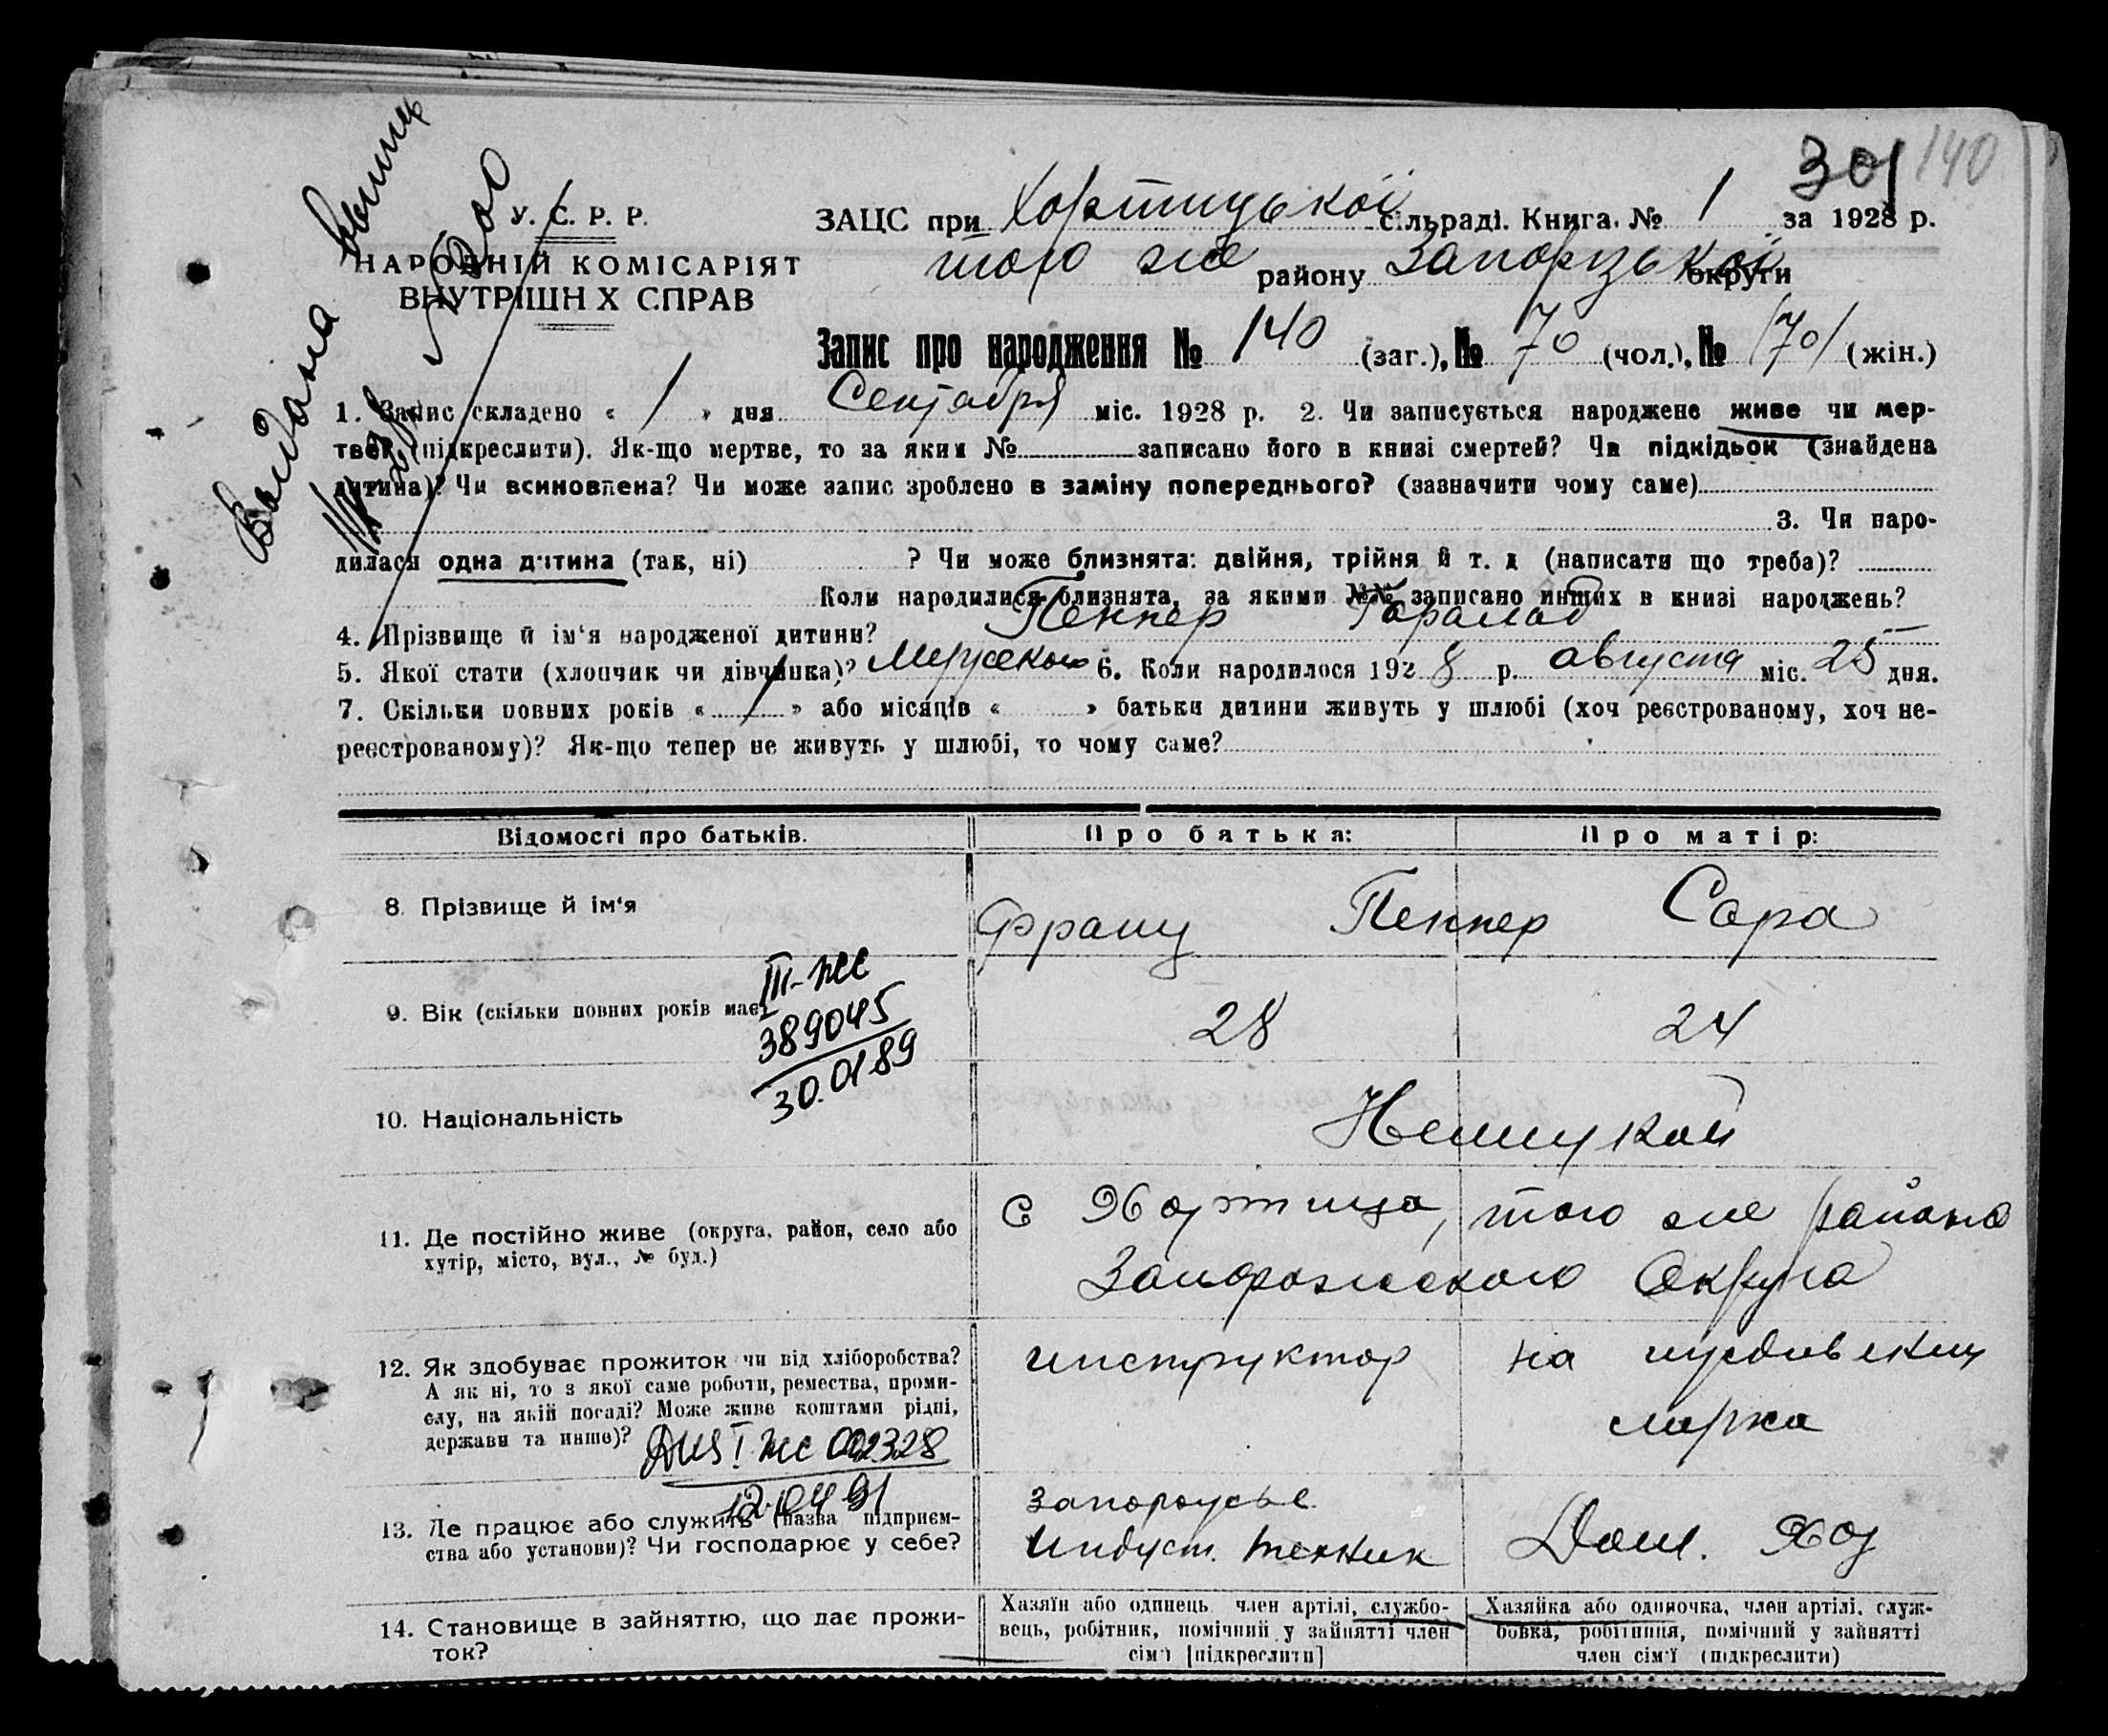 301 140
У. С. Р. Р.
НАРОДНІЙ КОМІСАРІЯТ
ВНУТРІШН Х СПРАВ
Видана
ЗАЦС при Хортицької сільраді. Книга. № 1 за 1928 р.
того же району Запорізької округи
Запис про народження № 140 (заг.), № 70 (чол.), № /70/ (жін.)
1. Запис складено « 1 » дня Сентября міс. 1928 р. 2. Чи записується народжене живе чи мер-
тве (підкреслити). Як-що мертве, то за яким № записано його в книзі смертей? Чи підкідьок (знайдена
дитина)? Чи всиновлена? Чи може запис зроблено в заміну попереднього? (зазначити чому саме)
3. Чи наро-
дилася одна дитина (так, ні) ? Чи може близнята: двійня, трійня й т. д (написати що треба)?
Коли народилися близнята, за якими №№ записано инших в книзі народжень?
4. Прізвище й ім'я народженої дитини? Пеннер
5. Якої стати (хлопчик чи дівчинка)? Мужской 6. Коли народилося 1928 р. августа міс. 25 дня.
7. Скільки повних років « 1 » або місяців « » батьки дитини живуть у шлюбі (хоч реєстрованому, хоч не-
реєстрованому)? Як-що тепер не живуть у шлюбі, то чому саме?
Відомості про батьків. Про батька: Про матір:
8. Прізвище й ім'я Франц Пеннер Сара
III-ЖС
9. Вік (скільки повних років має) 28 24
389045
30.01.89
10. Національність Немцкой
11. Де постійно живе (округа, район, село або
хутір, місто, вул., № буд.)
с Хортица, того же района
Запорожского Округа
12. Як здобуває прожиток чи від хліборобства?
А як ні, то з якої саме роботи, ремества, проми-
слу, на якій посаді? Може живе коштами рідні,
держави та инше)?
инструктор на иждивении
мужа
I ЖС 002328
12.04.91
13. Де працює або служить (назва підприєм-
ства або установи)? Чи господарює у себе?
Запорожье
Индуст. техник Дом. Хоз
14. Становище в зайняттю, що дає прожи-
ток?
Хазяїн або одинець член артілі, службо-
вець, робітник, помічний у зайнятті член
сім'ї [підкреслити]
Хазяйка або одиночка, член артілі, служ-
бовка, робітниця, помічний у зайнятті
член сім'ї (підкреслити)